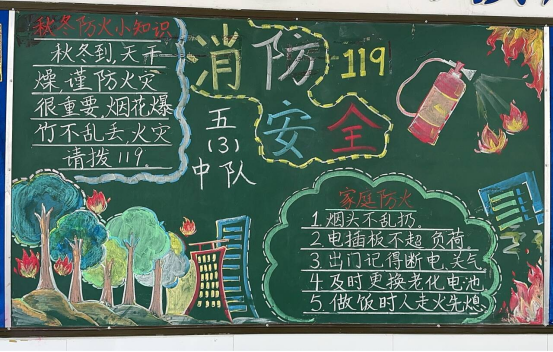 秋冬防火小知识
秋冬到,天干
燥,谨防火灾
很重要,烟花爆
竹不乱丢,火灾
请拨119.
消防119
安全
五
(3)
中队
家庭防火
1.烟头不乱扔。
2.电插板不超负荷.
3.出门记得断电.关气.
4.及时更换老化电池
5.做饭时人走火先熄